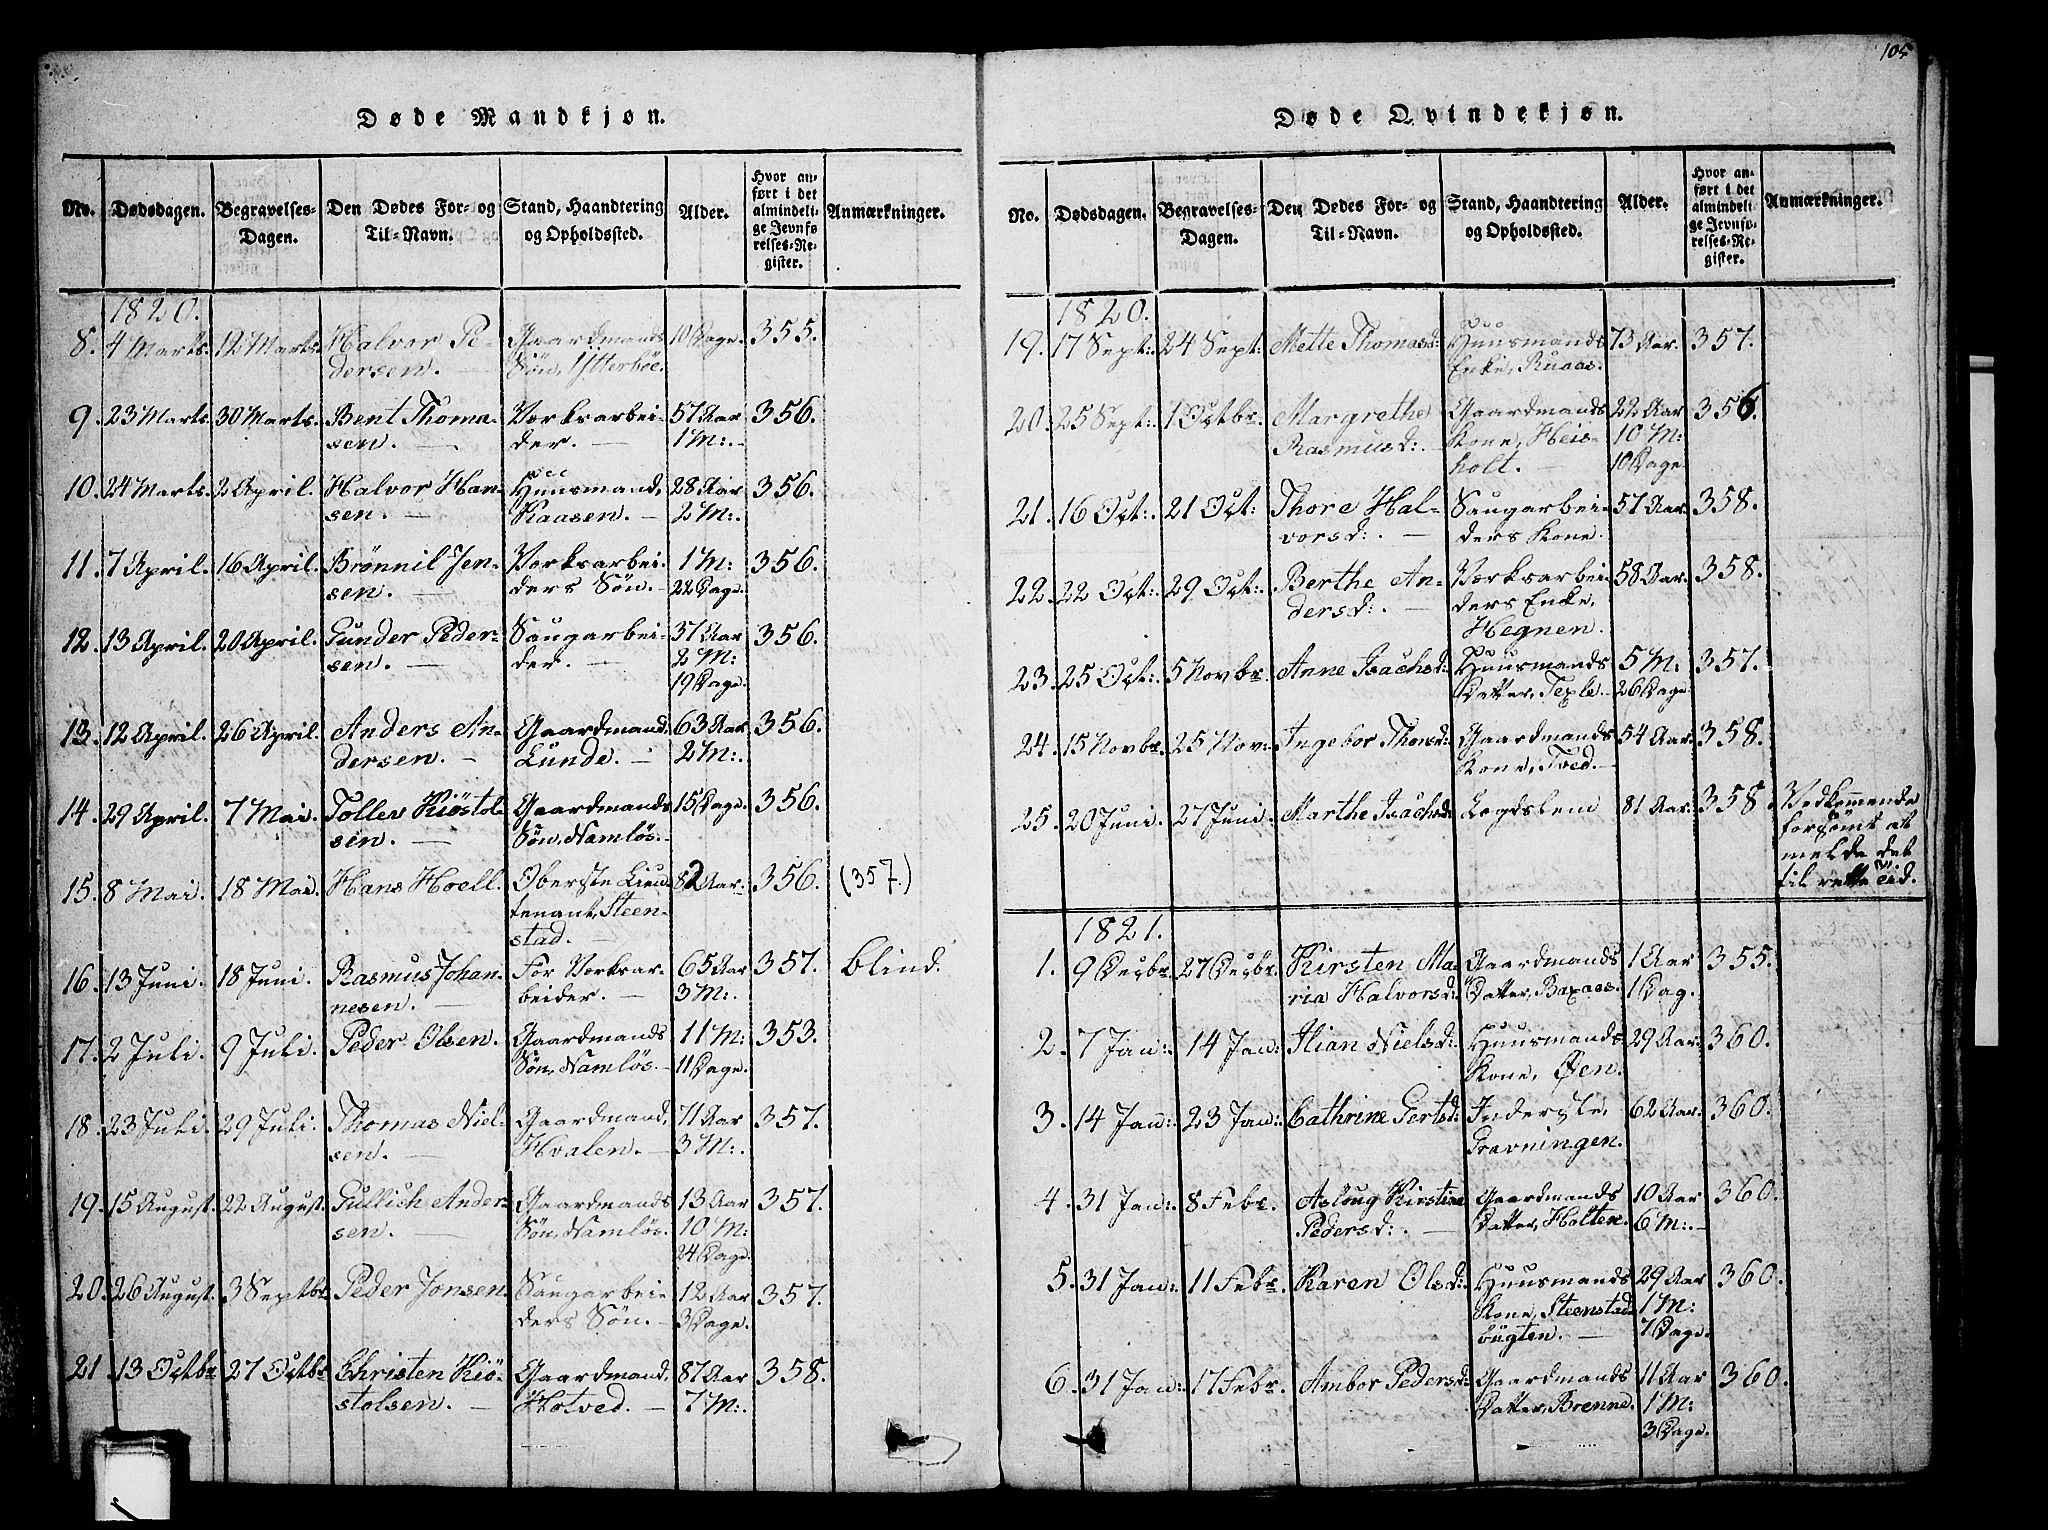 105
Døde Mandkjøn.
No. Dødsdagen. Begravelses-Dagen. Den Dødes For- og Til-Navn. Stand, Haandtering og Opholdssted. Alder. Hvor anført i det almindelige Jevnførelses-Register. Anmærkninger.
1820.
8. 4 Marts. 12 Marts. Halvor Pe- Gaardmands 10 Dage. 355.
dersen. — Søn, Ytterböe.
9. 23 Marts. 30 Marts. Bent Thoma- Værksarbei- 57 Aar 356.
sen. — der. — 1 M:.
10. 24 Marts. 2 April. Halvor Han- Huusmand, 28 Aar 356.
sen. — Kaasen. — 2 M:.
11. 7 April. 16 April. Brönnil Jen- Værksarbei- 1 M: 356.
sen. — ders Søn. — 22 Dage.
12. 13 April. 20 April. Gunder Peder- Saugarbei- 37 Aar 356.
sen. — der. — 2 M:
19 Dage.
13. 12 April. 26 April. Anders An- Gaardmand, 63 Aar 356.
dersen. — Lunde. — 2 M:.
14. 29 April. 7 Mai. Tollev Kiöstol- Gaardmands 15 Dage. 356.
sen. — Søn, Namlös.
15. 8 Mai. 18 Mai. Hans Hoell. Oberste Lieu- 82 Aar. 356. (357.)
tenant, Steen-
stad. —
16. 13 Juni. 18 Juni. Rasmus Johan- For Værksar- 65 Aar 357. Blind.
nesen. — beider. — 3 M:.
17. 2 Juli. 9 Juli. Peder Olsen. Gaardmands 11 M: 353.
Søn, Namlös. — 11 Dage.
18. 23 Juli. 29 Juli. Thomas Niel- Gaardmand, 71 Aar 357.
sen. — Hvalen. — 3 M:.
19. 15 August. 22 August. Gullich Ander- Gaardmands 13 Aar 357.
sen. — Søn, Namlös. 10 M:
24 Dage.
20. 26 August. 3 Septbr. Peder Jonsen. Saugarbei- 12 Aar 357.
ders Søn. — 3 Dage.
21. 13 Octbr. 27 Octbr. Christen Kiö- Gaardmand, 87 Aar 358.
stolsen. — Hotved. — 7 M:.
Døde Qvindekjøn.
No. Dødsdagen. Begravelses-Dagen. Den Dødes For- og Til-Navn. Stand, Haandtering og Opholdssted. Alder. Hvor anført i det almindelige Jevnførelses-Register. Anmærkninger.
1820.
19. 17 Sept:. 24 Sept: Mette Thomasd: Huusmands 73 Aar. 357.
Enke, Ruaas.
20. 25 Sept:. 1 Octbr. Margrethe Gaardmands 22 Aar 356.
Rasmusd:. — Kone, Heis- 10 M:
holt. — 10 Dage
21. 16 Oct:. 21 Oct: Thore Hal- Saugarbei- 57 Aar. 358.
vorsd:. — ders Kone.
22. 22 Oct:. 29 Oct:. Berthe An- Værksarbei- 58 Aar. 358.
dersd:. — ders Enke,
Hegnen.
23. 25 Oct:. 5 Novbr. Anne Isachsd: Huusmands 5 M: 357.
Datter, Texle. 26 Dage
24. 15 Novbr. 25 Nov: Ingebor Thorsd: Gaardmands 54 Aar. 358.
Kone, Tved. —
25. 20 Juni. 27 Juni. Marthe Isachsd: Legdslem 81 Aar. 358 Vedkommende
forsömt at
melde det
til rette Tid.
1821.
1. 9 Decbr. 27 Decbr. Kirsten Ma- Gaardmands 1 Aar 355.
ria Halvorsd: Datter, Baxaas. 1 Dag.
2. 7 Jan:. 14 Jan: Ilian Nielsd: Huusmands 29 Aar. 360.
Kone, Øen.
3. 14 Jan:. 23 Jan:. Cathrine Gertsd: Inderste, 62 Aar. 360.
Gravningen.
4. 31 Jan:. 8 Febr. Aslöug Kirstine Gaardmands 10 Aar 360.
Pedersd:. — Datter, Holten. 6 M:. —
5. 31 Jan: 11 Febr. Karen Olsd: Huusmands 29 Aar 360.
Kone, Steenstad- 1 M:
bugten. — 7 Dage.
6. 31 Jan: 17 Febr. Ambor Pedersd: Gaardmands 11 Aar 360.
Datter, Brenne. 1 M:
3 Dage.